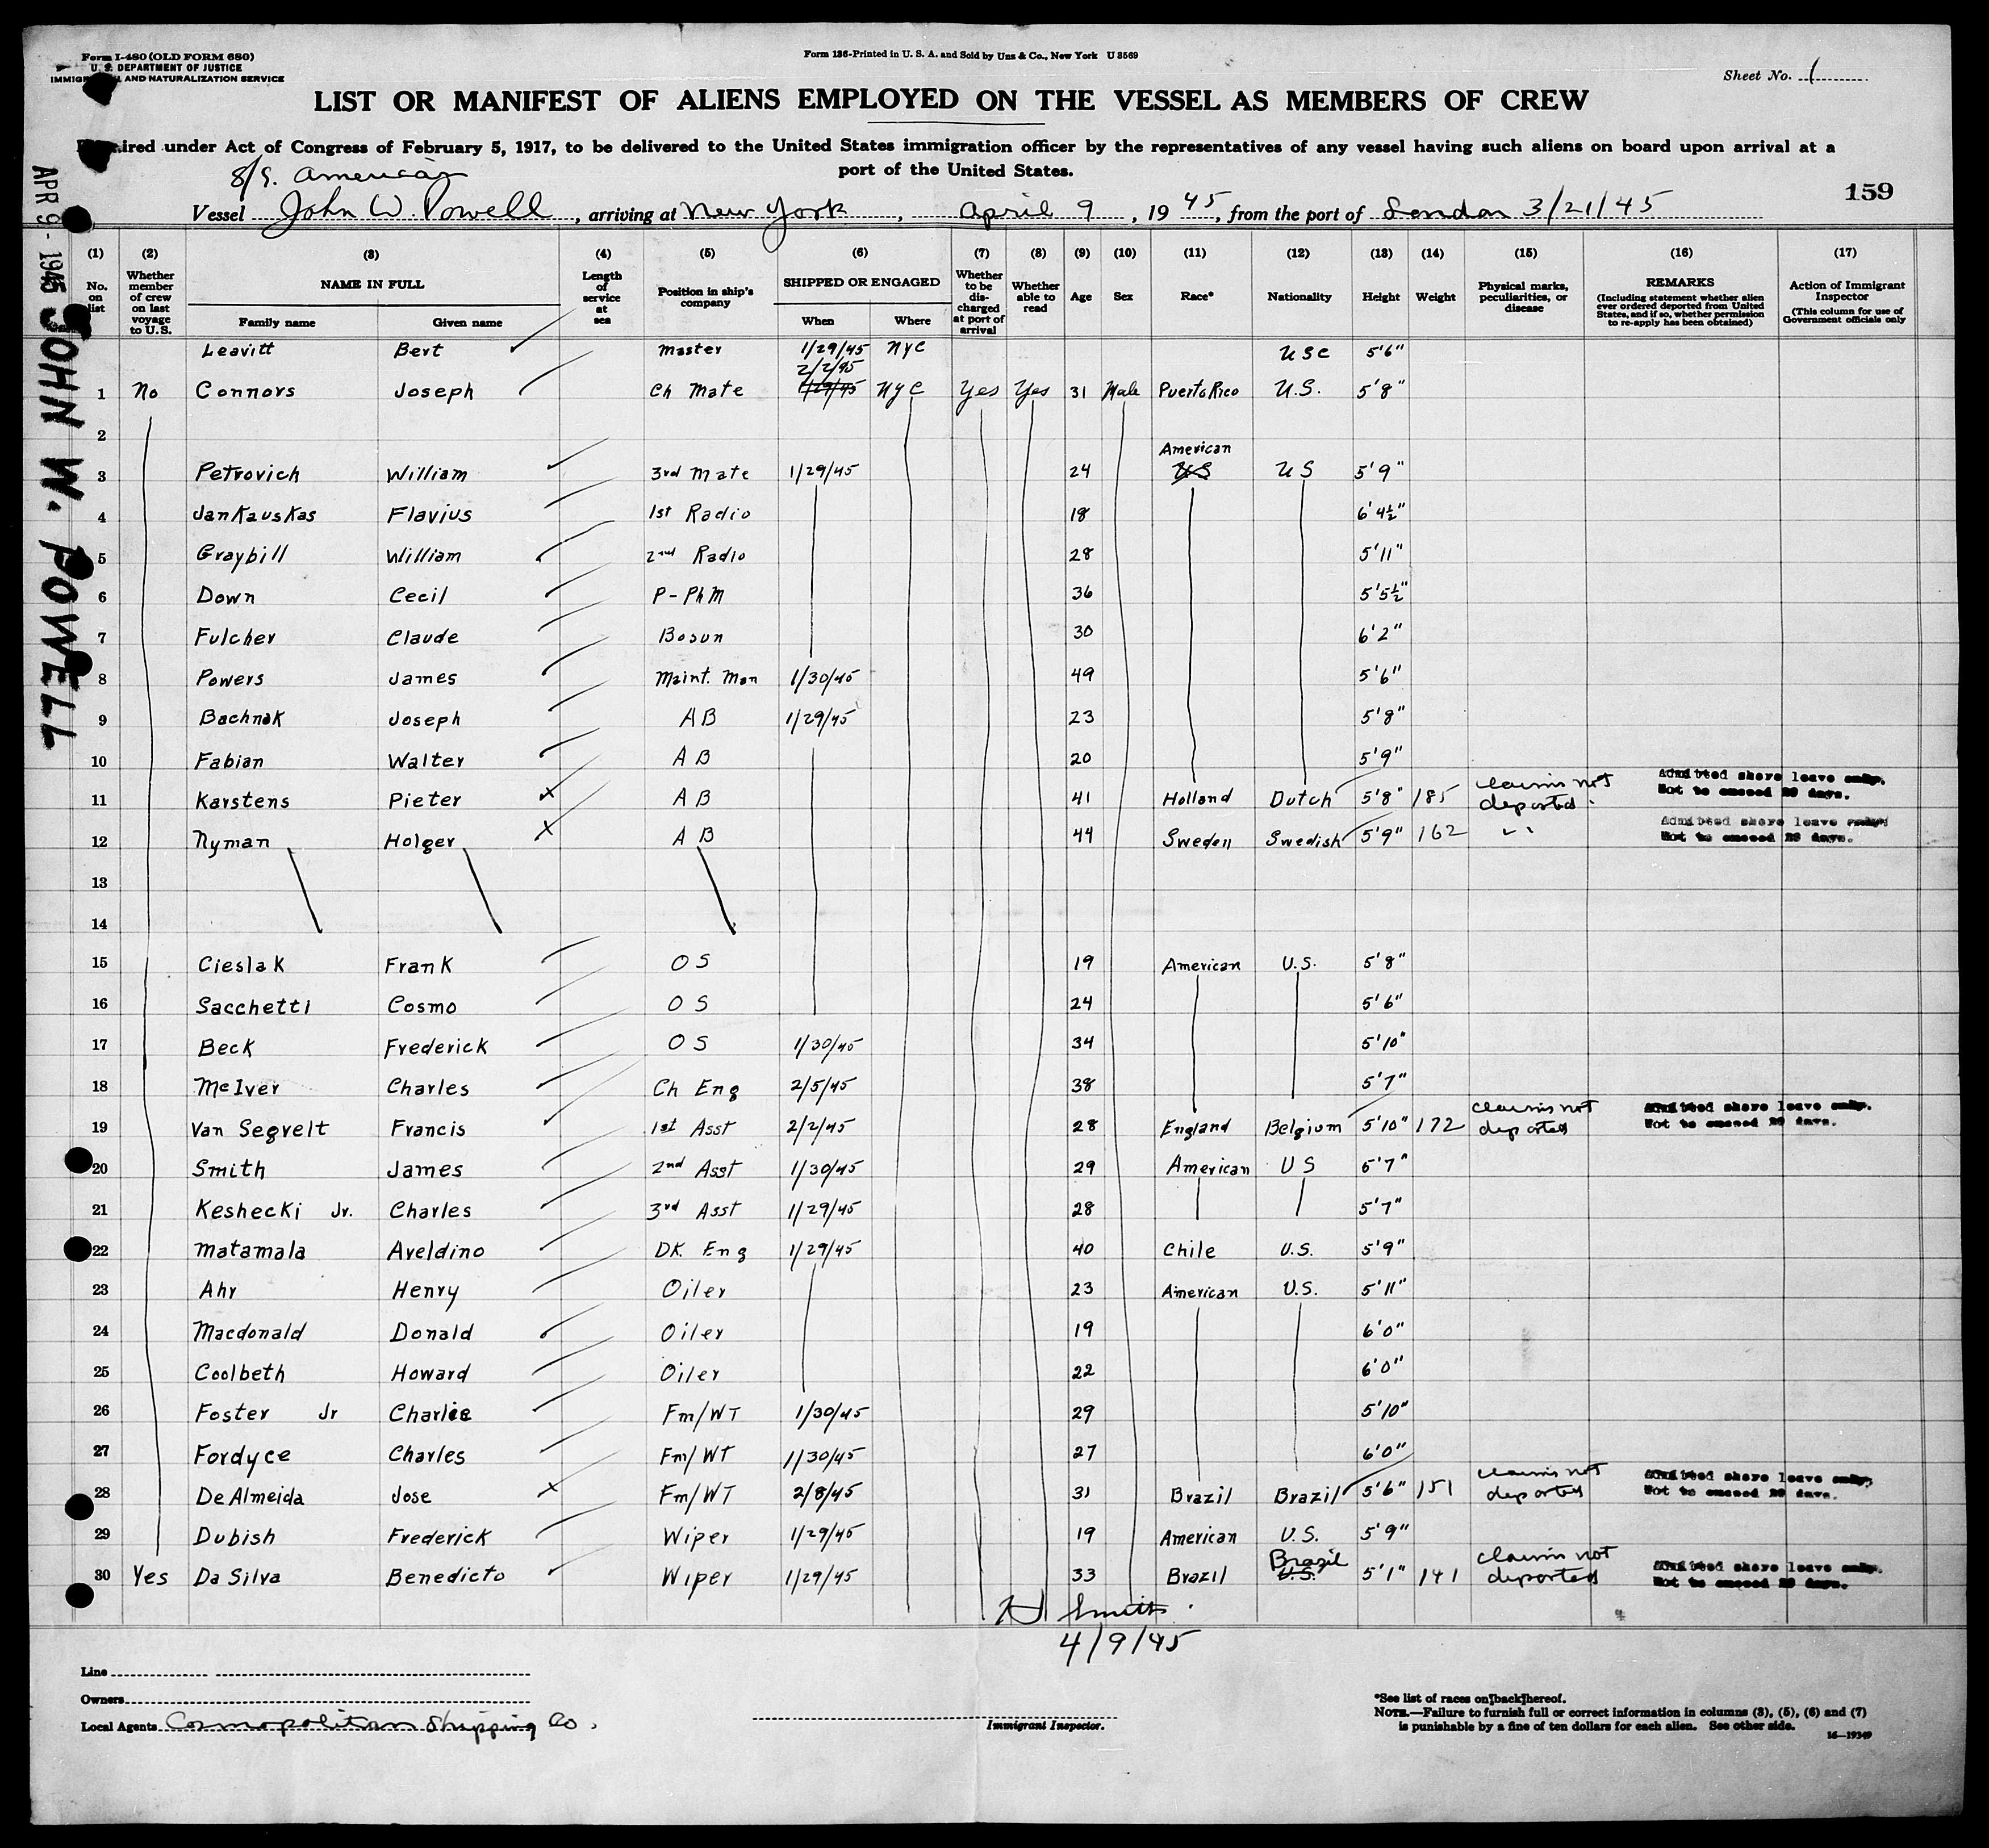 Form I-480 (OLD FORM 680)
U. S. DEPARTMENT OF JUSTICE
AND NATURALIZATION SERVICE
Form 136-Printed in U. S. A. and Sold by Unz & Co., New York U 3569
Sheet No. 1
LIST OR MANIFEST OF ALIENS EMPLOYED ON THE VESSEL AS MEMBERS OF CREW
under Act of Congress of February 5, 1917, to be delivered to the United States immigration officer by the representatives of any vessel having such aliens on board upon arrival at a
port of the United States.
S/S. American
159
Vessel John W. Powell, arriving at New York, April 9, 1945, from the port of London 3/21/45
APR 9 - 1945 JOHN W. POWELL
(1) (2) (3) (4) (5) (6) (7) (8) (9) (10) (11) (12) (13) (14) (15) (16) (17)
No. on list Whether member of crew on last voyage to U.S. NAME IN FULL Family name Given name Length of service at sea Position in ship's company SHIPPED OR ENGAGED When Where Whether to be discharged at port of arrival Whether able to read Age Sex Race* Nationality Height Weight Physical marks, peculiarities, or disease REMARKS (Including statement whether alien ever ordered deported from United States, and if so, whether permission to re-apply has been obtained) Action of Immigrant Inspector (This column for use of Government officials only
Leavitt Bert Master 1/29/45 NYC USC 5'6"
2/2/45
1 No Connors Joseph Ch Mate 1/29/45 NYC Yes Yes 31 Male Puerto Rico U.S. 5'8"
2
American
3 Petrovich William 3rd Mate 1/29/45 24 US US 5'9"
4 Jankauskas Flavius 1st Radio 18 6'4½"
5 Graybill William 2nd Radio 28 5'11"
6 Down Cecil P-PhM 36 5'5½"
7 Fulcher Claude Bosun 30 6'2"
8 Powers James Maint. Man 1/30/45 49 5'6"
9 Bachnak Joseph AB 1/29/45 23 5'8"
10 Fabian Walter AB 20 5'9"
11 Karstens Pieter x AB 41 Holland Dutch 5'8" 185 claims not deported. Admitted shore leave only. Not to exceed 29 days.
12 Nyman Holger x AB 44 Sweden Swedish 5'9" 162 " Admitted shore leave only Not to exceed 29 days.
13
14
15 Cieslak Frank OS 19 American U.S. 5'8"
16 Sacchetti Cosmo OS 24 5'6"
17 Beck Frederick OS 1/30/45 34 5'10"
18 McIver Charles Ch Eng 2/5/45 38 5'7"
19 Van Segvelt Francis 1st Asst 2/2/45 28 England Belgium 5'10" 172 claims not deported Admitted shore leave only. Not to exceed 29 days.
20 Smith James 2nd Asst 1/30/45 29 American US 5'7"
21 Keshecki Jr. Charles 3rd Asst 1/29/45 28 5'7"
22 Matamala Aveldino DK. Eng 1/29/45 40 Chile U.S. 5'9"
23 Ahr Henry Oiler 23 American U.S. 5'11"
24 Macdonald Donald Oiler 19 6'0"
25 Coolbeth Howard Oiler 22 6'0"
26 Foster Jr Charlie Fm/WT 1/30/45 29 5'10"
27 Fordyce Charles Fm/WT 1/30/45 27 6'0"
28 DeAlmeida Jose x Fm/WT 2/8/45 31 Brazil Brazil 5'6" 151 claims not deported Admitted shore leave only. Not to exceed 29 days.
29 Dubish Frederick Wiper 1/29/45 19 American U.S. 5'9"
30 Yes DaSilva Benedicto Wiper 1/29/45 33 Brazil Brazil U.S. 5'1" 141 claims not deported Admitted shore leave only. Not to exceed 29 days.
Smith
4/9/45
Line
Owners
Local Agents Cosmopolitan Shipping Co.
Immigrant Inspector.
*See list of races on back hereof.
NOTE.—Failure to furnish full or correct information in columns (3), (5), (6) and (7)
is punishable by a fine of ten dollars for each alien. See other side.
16—19349